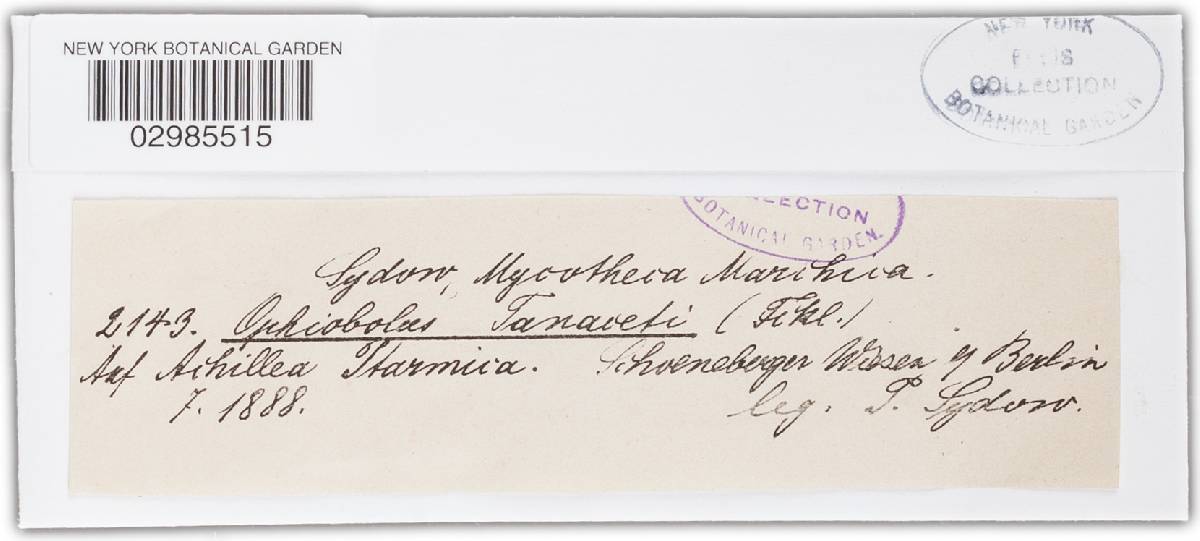 NEW YORK BOTANICAL GARDEN
02985515
NEW YORK
COLLECTION
BOTANICAL GARDEN
COLLECTION
BOTANICAL GARDEN.
Sydow, Mycotheca Marchica.
2143. Ophiobolus Tanaceti (Fckl.)
Auf Achillea Ptarmica. Schoeneberger Wiesen b/ Berlin
7. 1888. leg. P. Sydow.